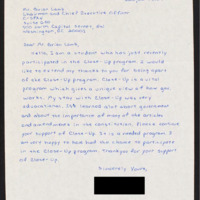 Mr. Brian Lamb
Chairman and Chief Executive Officer
C-SPAN
Suite 650
400 North Capitol Street, NW
Washington, DC 20001
Dear Mr. Brian Lamb,
Hello, I am a student who has just recently
participated in the Close-Up program. I would
like to extend my thanks to you for being a part
of the Close-Up program. Close-Up is a vital
program which gives a unique view of how gov.
works. My stay with Close-Up was very
educational. I learned alot about government
and about the importance of many of the articles
and amendments in the constitution. Please continue
your support of Close-Up. It is a needed program. I
am very happy to have had the chance to participate
in the Close-Up program. Thank you for your support
of Close-Up.
Sincerely Yours,